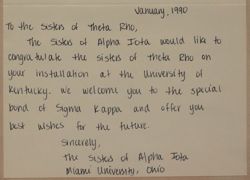 January, 1990
To the Sisters of Theta Rho,
The Sisters of Alpha Iota would like to
congratulate the sisters of Theta Rho on
your installation at the University of
Kentucky. We welcome you to the special
bond of Sigma Kappa and offer you
best wishes for the future.
Sincerely,
The Sisters of Alpha Iota
Miami University, Ohio